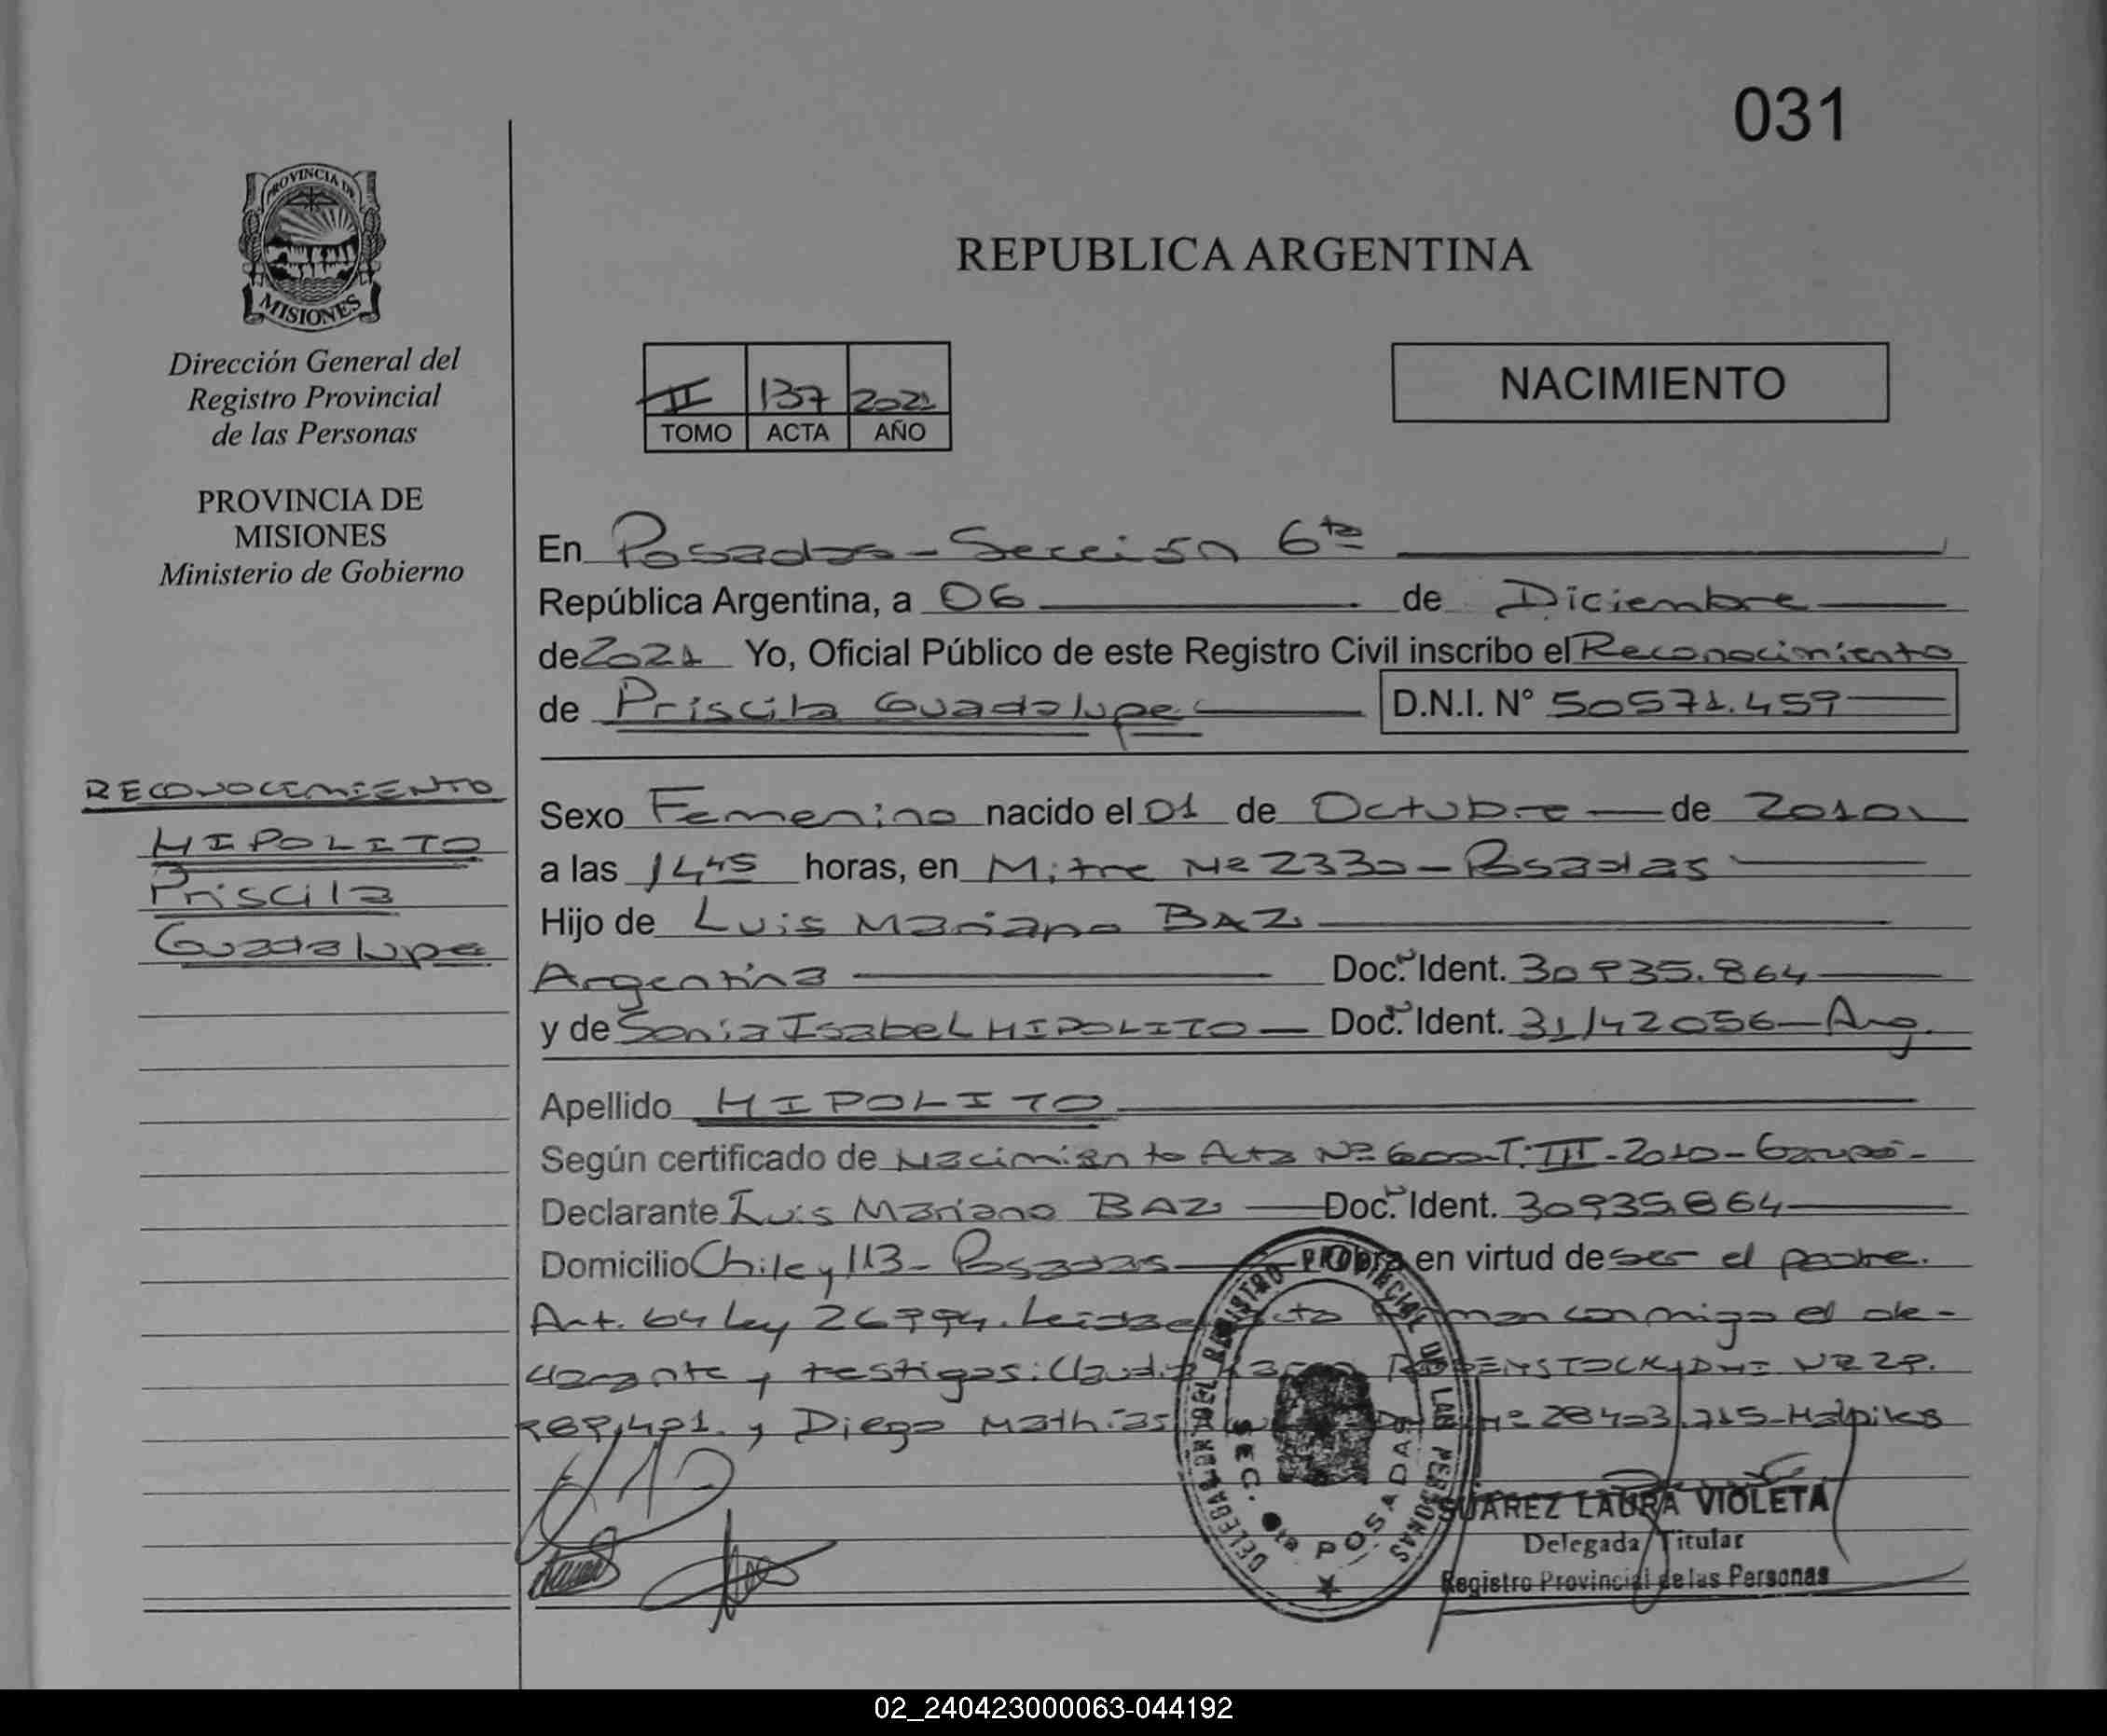 031
PROVINCIA DE
MISIONES
Dirección General del
Registro Provincial
de las Personas
PROVINCIA DE
MISIONES
Ministerio de Gobierno
REPUBLICA ARGENTINA
II 137 2021
TOMO ACTA AÑO
NACIMIENTO
En Posadas - Sección 6ta
República Argentina, a 06 de Diciembre
de 2021 Yo, Oficial Público de este Registro Civil inscribo el Reconocimiento
de Priscila Guadalupe D.N.I. N° 50571.459
RECONOCIMIENTO
HIPOLITO
Priscila
Guadalupe
Sexo Femenino nacido el 01 de Octubre de 2010
a las 14 45 horas, en Mitre Nº 2330 - Posadas
Hijo de Luis Mariano BAZ
Argentina Doc. Ident. 30935.864
y de Sonia Isabel HIPOLITO Doc. Ident. 31142056 - Arg.
Apellido HIPOLITO
Según certificado de Nacimiento Acta Nº 600 - T: III - 2010 - Garupá -
Declarante Luis Mariano BAZ Doc. Ident. 30935864
Domicilio Chile y 113 - Posadas Obra en virtud de ser el padre.
Art. 64 Ley 26994. Leida el Acta conmigo el de-
clarante y testigos: DNI Nº 29.
y Diego Mathias Nº 28403.715 -
DELEGACION DEL REGISTRO PROVINCIAL DE LAS PERSONAS
SEC. 6ta POSADAS
SUAREZ LAURA VIOLETA
Delegada Titular
Registro Provincial de las Personas
02_240423000063-044192